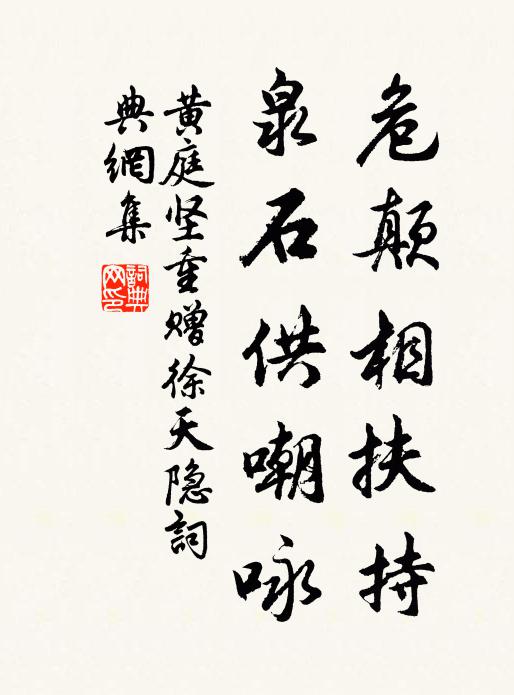 危颠相扶持
泉石供嘲咏
黄庭坚重赠徐天隐詞
典網集
詞典
网印